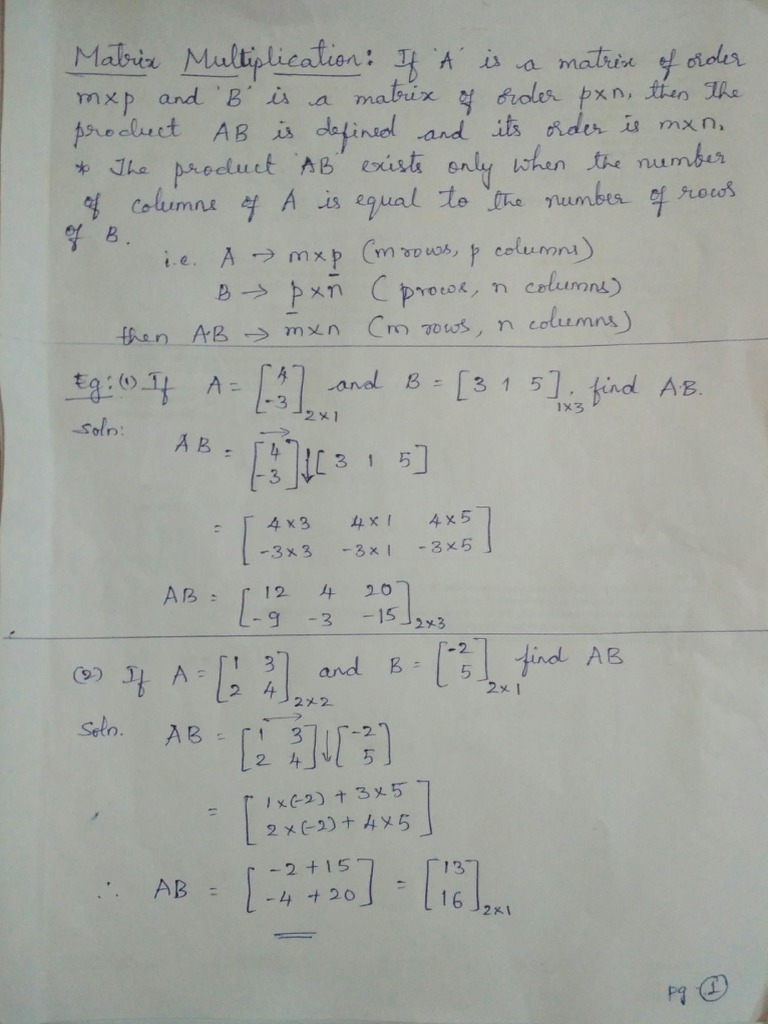 Matrix Multiplication: If 'A' is a matrix of order
m×p and 'B' is a matrix of order p×n, then The
product AB is defined and its order is m×n.
* The product 'AB' exists only when the number
of columns of A is equal to the number of rows
of B.
i.e. A → m×p (m rows, p columns)
B → p×n (p rows, n columns)
then AB → m×n (m rows, n columns)
Eg: (1) If A = [4 -3] 2×1 and B = [3 1 5] 1×3, find AB.
Soln:
AB = [4 -3] ↓ [3 1 5]
= [4×3 4×1 4×5
-3×3 -3×1 -3×5]
AB = [12 4 20
-9 -3 -15] 2×3
(2) If A = [1 3 2 4] 2×2 and B = [-2 5] 2×1 find AB
Soln. AB = [1 3 2 4] ↓ [-2 5]
= [1×(-2) + 3×5
2×(-2) + 4×5]
∴ AB = [-2+15 -4+20] = [13 16] 2×1
pg - 1